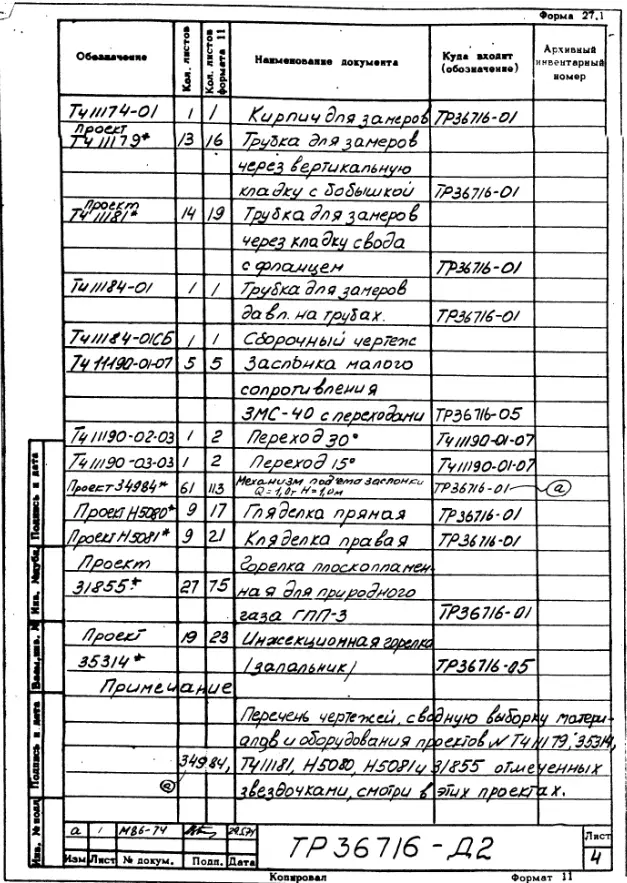 Форма 27.1
Обозначение Кол. листов Кол. листов формата 11 Наименование документа Куда входит (обозначение) Архивный инвентарный номер
ТЧ11174-01 1 1 Кирпич для замеров ТР36716-01
Проект
ТЧ11179* 13 16 Трубка для замеров
через вертикальную
кладку с бобышкой ТР36716-01
Проект
ТЧ11181* 14 19 Трубка для замеров
через кладку свода
с фланцем ТР36716-01
ТЧ11184-01 1 1 Трубка для замеров
давл. на трубах. ТР36716-01
ТЧ11184-01СБ 1 1 Сборочный чертеж
ТЧ 11190-01-07 5 5 Заслонка малого
сопротивления
ЗМС-40 с переходами ТР36716-05
ТЧ11190-02-03 1 2 Переход 30° ТЧ11190-01-07
ТЧ11190-03-03 1 2 Переход 15° ТЧ11190-01-07
Проект34984* 61 113 Механизм под'ема заслонки
Q=1,0т H=1,0м ТР36716-01 а
Проект Н5080* 9 17 Гляделка прямая ТР36716-01
Проект Н5081* 9 21 Кляделка правая ТР36716-01
Проект Горелка плоскопламен-
31855* 27 75 ная для природного
газа ГПП-3 ТР36716-01
Проект 19 23 Инжекционная горелка
35314* /запальник/ ТР36716-05
Примечание
Перечень чертежей, сводную выборку матери-
алов и оборудования проектов № ТЧ11179, 35314,
34984, ТЧ11181, Н5080, Н5081 и 31855 отмеченных
а звездочками, смотри в этих проектах.
Подпись и дата
Инв. № дубл.
Взам. инв. №
Подпись и дата
Инв. № подл.
а 1 М86-74
Изм Лист № докум. Подп. Дата
ТР36716-Д2
Лист
4
Копировал Формат 11